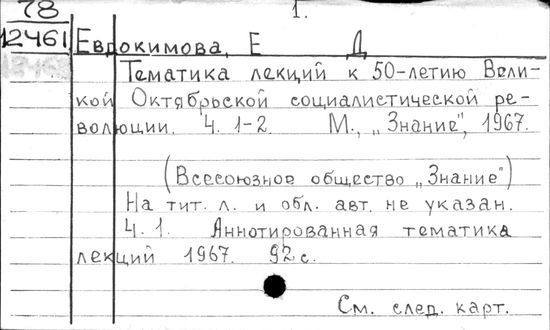 78 1.
12461 Евдокимова, Е Д
Тематика лекций к 50-летию Вели-
кой Октябрьской социалистической ре-
волюции. Ч. 1-2. М., „Знание", 1967.
(Всесоюзное общество „Знание")
На тит. л. и обл. авт. не указан.
Ч. 1. Аннотированная тематика
лекций 1967. 92 с.
См. след. карт.